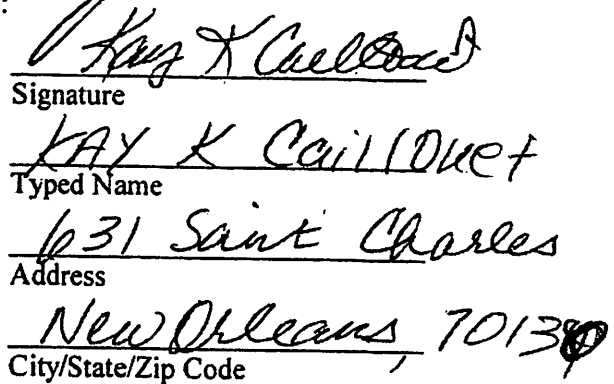 :
Kay K Caillouet
Signature
KAY K Caillouet
Typed Name
631 Saint Charles
Address
New Orleans, 70130
City/State/Zip Code